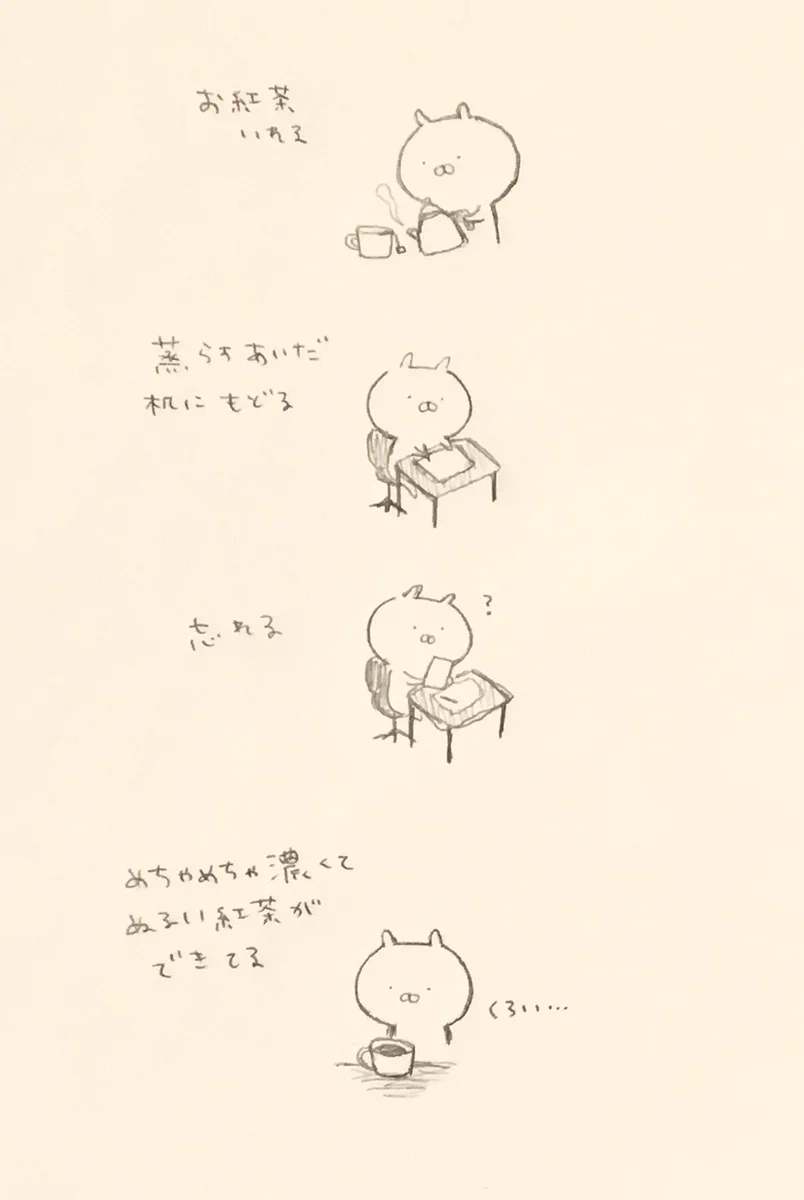 お紅茶
いれる
蒸らすあいだ
机にもどる
忘れる
?
めちゃめちゃ濃くて
ぬるい紅茶が
できてる
くろい…